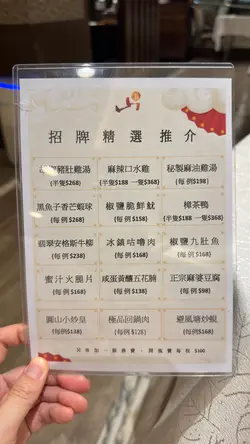 招牌精選推介
豬肚雞湯
(半隻$268)
麻辣口水雞
(半隻$188 一隻$368)
秘製麻油雞湯
(每例$198)
黑魚子香芒蝦球
(每例$268)
椒鹽脆鮮魷
(每例$158)
樟茶鴨
(半隻$188 一隻$368)
翡翠安格斯牛柳
(每例$238)
冰鎮咕嚕肉
(每例$168)
椒鹽九肚魚
(每例$168)
蜜汁火腿片
(每例$168)
咸蛋黃釀五花腩
(每例$168)
正宗麻婆豆腐
(每例$98)
圓山小炒皇
(每例$138)
極品回鍋肉
(每例$128)
避風塘炒蜆
(每例$168)